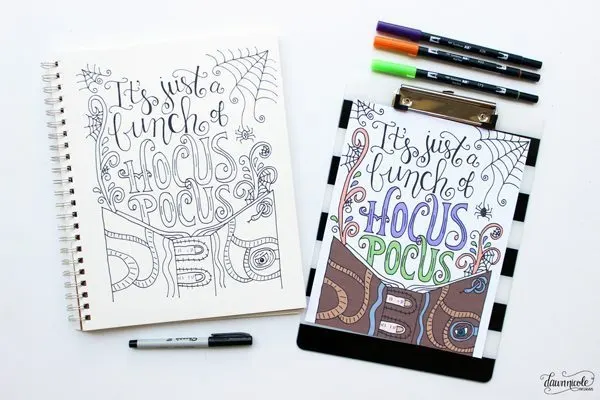 It's just a
bunch of
HOCUS
POCUS
It's just a
bunch of
HOCUS
POCUS
Sharpie
dawnnicole
DESIGNS